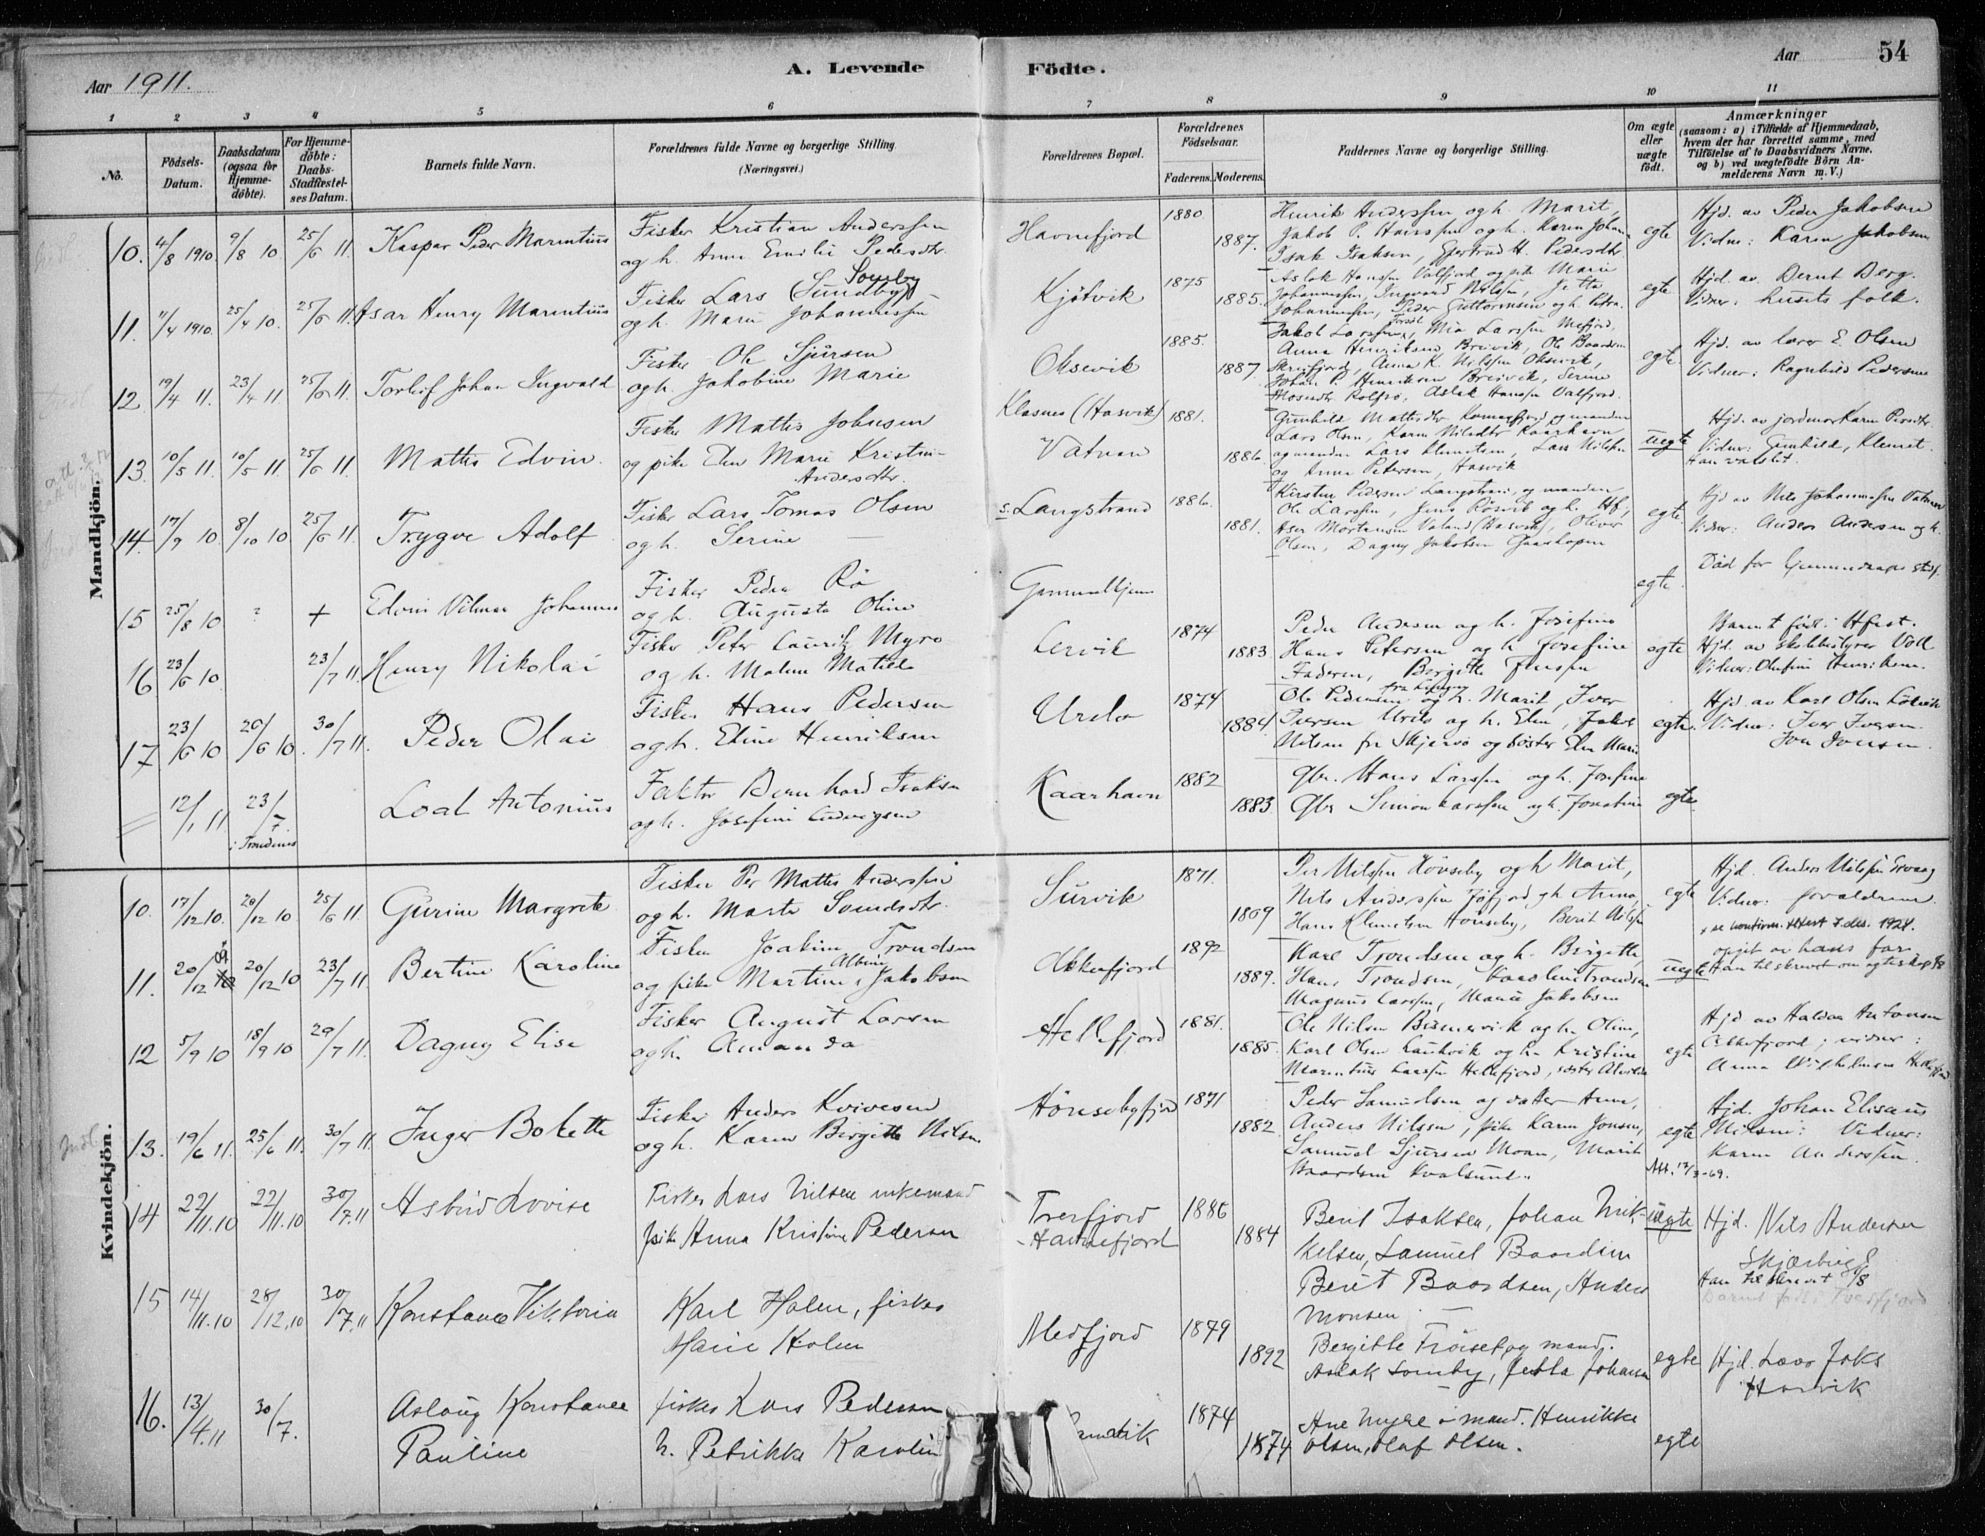 Aar 1911.
A. Levende Födte.
Aar 54
1 2 3 4 5 6 7 8 9 10 11
No.
Födsels-Datum.
Daabsdatum (ogsaa for Hjemmedöbte).
For Hjemmedöbte: Daabs-Stadfæstelses Datum.
Barnets fulde Navn.
Forældrenes fulde Navne og borgerlige Stilling (Næringsvei.)
Forældrenes Bopæl.
Forældrenes Födselsaar.
Faderens. Moderens.
Faddernes Navne og borgerlige Stilling.
Om ægte eller uægte födt.
Anmærkninger
(saasom: a) i Tilfælde af Hjemmedaab, hvem der har forrettet samme, med Tilföielse af to Daabsvidners Navne, og b) ved uægtefödte Börn Anmelderens Navn m. V.)
Mandkjön.
10. 4/8 1910. 9/8 10. 25/6 11. Kaspar Peder Marentius
Fisker Kristian Anderssen
og h. Anne Emilie Pedersdtr.
Havnefjord 1880 1887.
Henrik Anderssen og h. Marit,
Jakob P. Hanssen og h. Karen Johan.
Isak Isaksen, Gjertrud H. Pedersdtr
egte
Hjd. av Peder Jakobsen
Vidne: Karen Jakobsen
11. 11/4 1910. 25/4 10. 25/6 11. Asar Henry Marentius
Fisker Lars (Sundby) Somby
og h. Marie Johannessen
Kjøtvik 1875 1885.
Aslak Hanssen Valfjord, og pike Marie
Johannessen, Ingvard Nilsen, Jetta
Johannessen, Peder Guttormsen og h. Petra
egte
Hjd. av Bernt Berg.
Vidner: husets folk.
12. 19/4 11. 23/4 11 25/6 11. Torleif Johan Ingvald
Fisker Ole Sjursen
og h. Jakobine Marie
Oksevik 1885. 1887
Jakob Larssen, Mia Larssen Mefjord,
Anna Henriksen Breivik, Ole Baardsen
Skreifjord, Anna K. Nilssen Oksevik,
Johan P. Henriksen Breivik, Serine
Rolfsø, Aslak Hanssen Valfjord.
egte
Hjd. av lærer E. Olsen
Vidner: Ragnhild Pedersen
13. 10/5 11. 10/5 11 25/6 11. Mathis Edvin.
Fisker Mathis Johnsen
og pike Elen Marie Kristine
Andersdtr.
Klasnes (Hasvik) Vatnan 1881. 1886.
Gunhild Mathisdtr Komagfjord og manden
Lars Olsen, Karen Nilsdtr Kaarhavn
og manden Lars Klemetsen, Lars Nilssen
og Anna Petersen, Hasvik
uegte
Hjd. av jordmor Karen
Vidner: Gunhild, Klemet.
14 17/9 10 8/10 10 25/6 11. Trygve Adolf
Fisker Lars Tomas Olsen
og h. Serine —
S. Langstrand 1886. 1881.
Kirsten Pedersen Langstrand, og manden
Ole Larssen, Jens Rösvik og h. Hf,
Aser Mortensen Valand (Hasvaag), Oliver
Olsen, Dagny Jakobsen
egte
Hjd av Nils Johannessen Vatnan
Vidner: Anders Andersen og h.
15 25/8 10 ? + Edvin Vilmar Johannes
Fisker Peder Rö
og h. Augusta Oline
egte.
Död for
16 23/6 10 23/7 11 Henry Nikolai
Fisker Peter Lauritz Myro
og h. Malene Matiele
Lervik 1874 1883
Peder Andersen og h. Josefine
Hans Petersen og h. Josefine
Faderen, Bergitte Jenssen
egte
Barnet født i Hfest.
Hjd. av skolebestyrer Voll
Vidner: Olufine Henriksen.
17 23/6 10 20/6 10. 30/7 11. Peder Olai
Fisker Hans Pedersen
og h. Eline Henriksen
Uredo 1874 1884
Ole Pedersen og h. Marit, Iver
Iversen Uredo og h. Elen, Jakob
Nilsen fra Skjervø og søster Elen Marie
egte.
Hjd. av Karl Olsen Lökvik
Vidner: Iver Iversen.
Jon Jonsen.
12/1 11 23/7 i Trondenes Loal Antonius
Faktor Bernhard Isaksen
og h. Josefine Ludvigsen
Kaarhavn 1882 1883
Gbr. Hans Larssen og h. Josefine
Gbr Simon Larssen og h. Jonetine
egte
Kvindekjön.
10. 17/12 10. 20/12 10 25/6 11. Gurine Margrete
Fisker Per Mathis Anderssen
og h. Marte Samdsdtr.
Survik 1871. 1869
Per Nilssen Hönseby og h Marit,
Nils Anderssen Jöfjord, og h. Anna,
Hans Klemetsen Hönseby, Berit Nilssen
egte
Hjd. Anders Nilssen
Vidner: forældrene.
11. 20/12 09 20/12 10 23/7 11. Bertine Karoline
Fisker Joakim Trondsen
og pike Martine Albine Jakobsen
Akkerfjord 1892 1889.
Karl Trondsen og h. Birgitte,
Hans Trondsen, Karoline Trondsen
Magnus Larssen, Marie Jakobsen
uegte
se konfirm. Hfest 7 des. 1924.
opgit av hans far
Han tilskrevet om egteskap
12 5/9 10 18/9 10 29/7 11. Dagny Elise
Fisker August Larsen
og h. Amanda
Hellefjord 1881. 1885.
Ole Nilsen Bismervik og h. Oline,
Karl Olsen Laukvik og h. Kristine
Marentius Larssen Hellefjord, søster Alvilde
egte
Hjd av Haldor Antonsen
Akkerfjord; vidner:
Anna Wilhelmsen Hellefjord
13. 19/6 11. 25/6 11. 30/7 11. Inger Bolette
Fisker Anders Kvivesen
og h. Karen Birgitte Nilsen
Hönsebyfjord 1871 1882.
Peder Samuelsen og datter Anne,
Anders Nilsen, pike Karen Jonsen,
Samuel Sjursen Moan, Marit
Baardsen Kvalsund..
egte
Att. 17/3-69.
Hjd. Johan Elisæus
Nilsen: Vidner:
Karen Anderssen.
14 22/11.10 22/11.10 30/7.11 Asbird Lovise
Fisker Lars Nilsen enkemand
pike Anna Kristine Pedersen
Tverfjord
- Havnefjord 1886 1884
Berit Isaksen, Johan Mik-
kelsen, Samuel Baardsen
Berit Baardsen, Anders
Monsen —
uegte
Hjd. Nils Andersen
Skjærbugt
Han tilskrevet 1/8
Barnet født i Tverfjord
15 14/11.10 28/12.10 30/7.11 Konstance Viktoria
Karl Holen, fisker
Marie Holen
Medfjord 1879 1892
Bergitte Troiset og mand.
Aslak Somby, Jetta Johansen
egte
Hjd. Lars Joks
Hasvik
16. 13/4.11 30/7. Aslaug Konstance
Pauline
fisker Lars Pedersen
h. Petrikke Karolin
1874 1874
Ane Myhre o mand. Henrikke
Olsen, Olaf Olsen.
egte